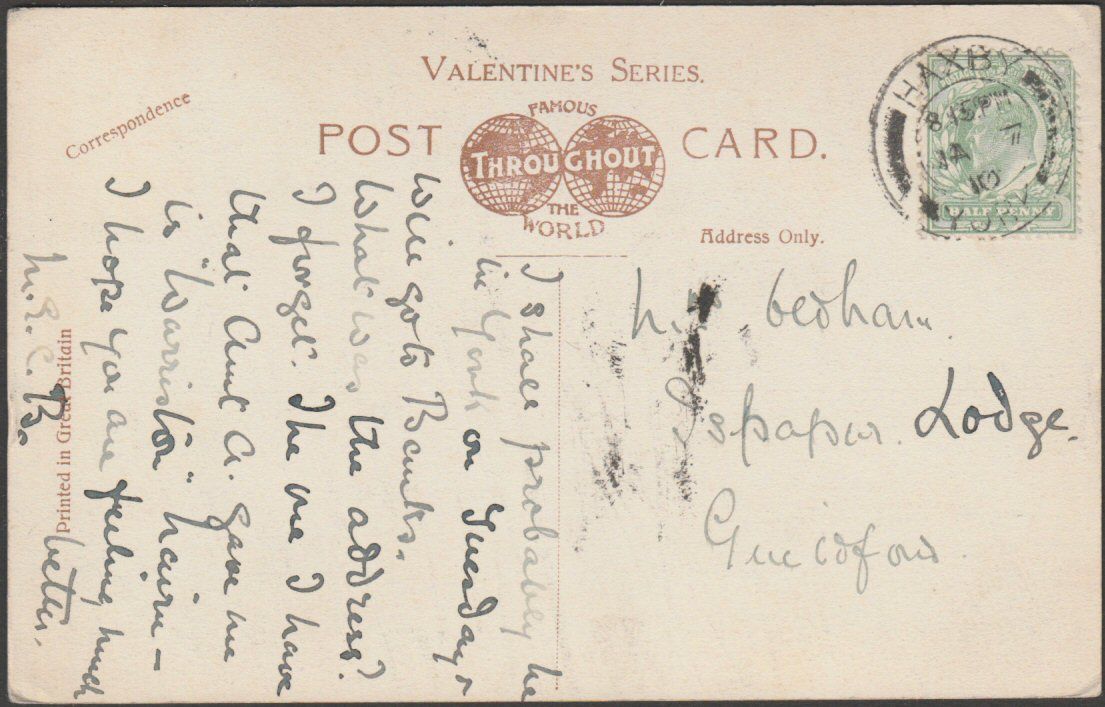 VALENTINE'S SERIES.
FAMOUS
POST THROUGHOUT CARD.
THE
WORLD
Correspondence
Address Only.
HAXBY
8.15PM
JA 7
10
YORK
HALF PENNY
I shall probably be
in York on Tuesday &
will go to Banks.
What was the address?
I forget. The one I have
that Aunt A. gave me
is "Warriston"
I hope you are feeling much
better.
M.E.C.B.
Lodge.
Guildford.
Printed in Great Britain